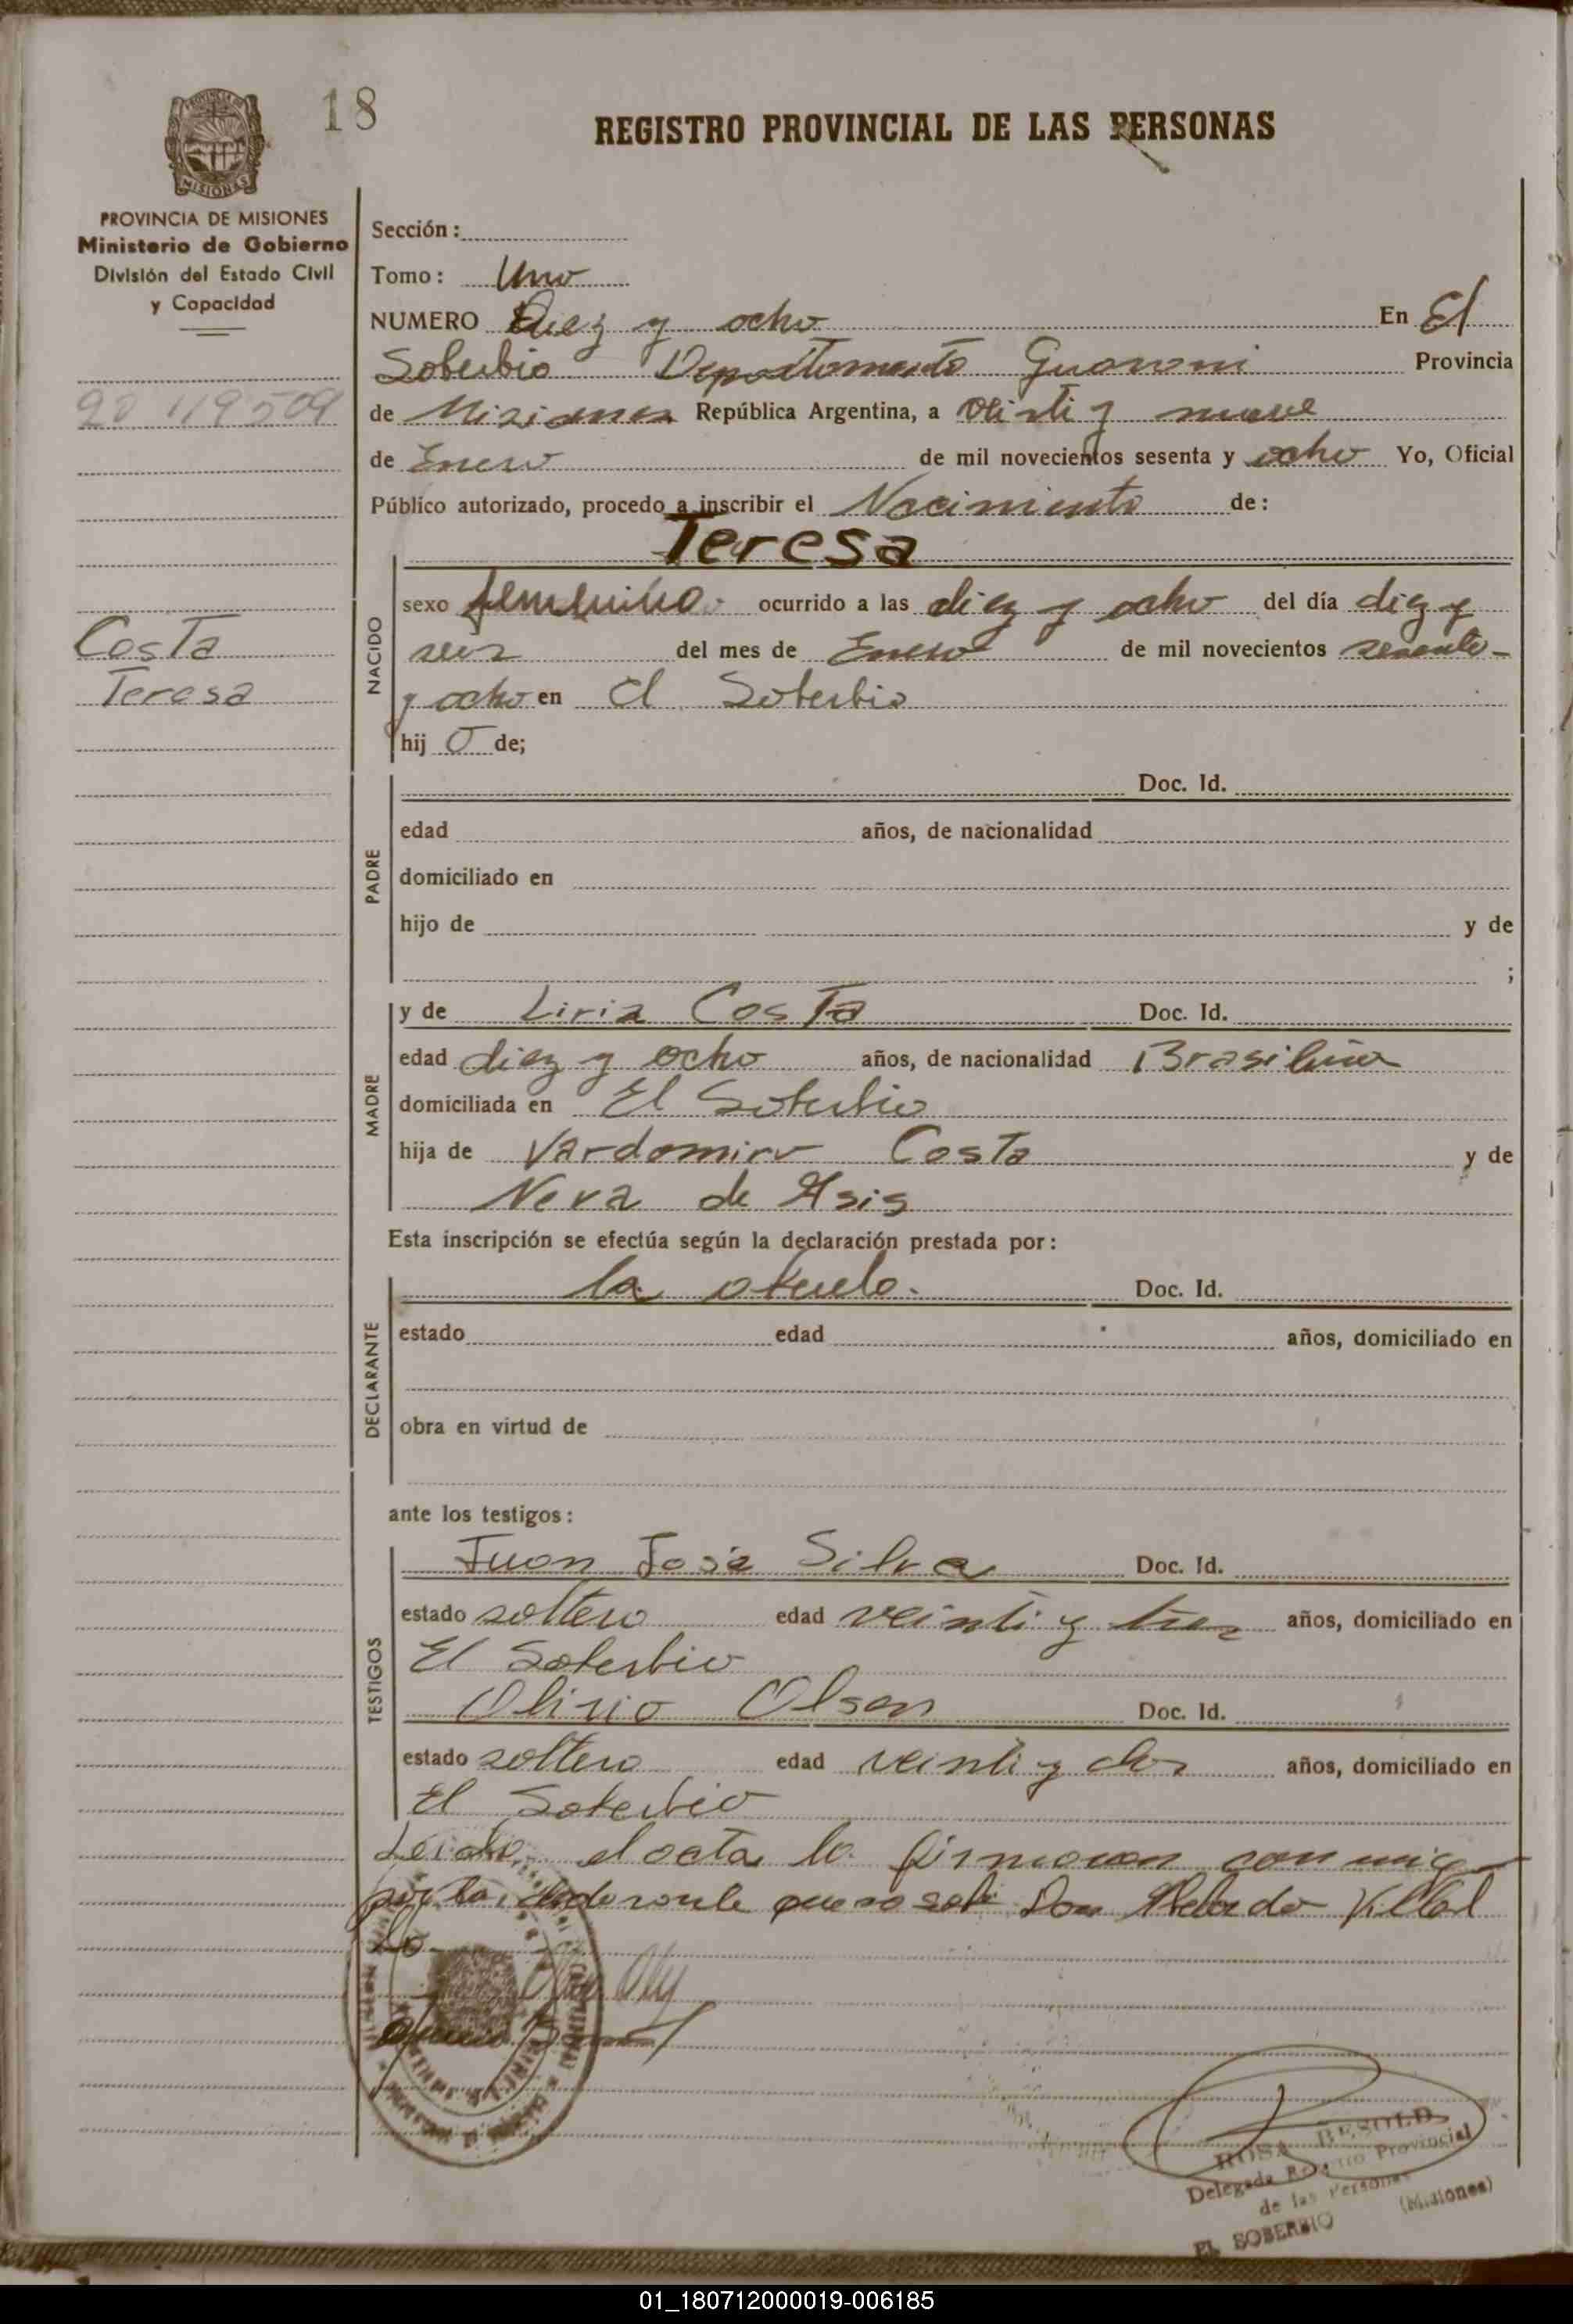 18
REGISTRO PROVINCIAL DE LAS PERSONAS
MISIONES
PROVINCIA DE MISIONES
Ministerio de Gobierno
División del Estado Civil
y Capacidad
20 119509
Costa
Teresa
Sección:
Tomo: Uno
NUMERO Diez y ocho En El
Soberbio Departamento Guarani Provincia
de Misiones República Argentina, a veinti y nueve
de Enero de mil novecientos sesenta y ocho Yo, Oficial
Público autorizado, procedo a inscribir el Nacimiento de:
Teresa
NACIDO
sexo femenino ocurrido a las diez y ocho del día diez y
seis del mes de Enero de mil novecientos sesenta
y ocho en El Soberbio
hij o de;
PADRE
Doc. Id.
edad años, de nacionalidad
domiciliado en
hijo de y de
;
MADRE
y de Liria Costa Doc. Id.
edad diez y ocho años, de nacionalidad Brasileña
domiciliada en El Soberbio
hija de Vardomiro Costa y de
Neva de Asis
Esta inscripción se efectúa según la declaración prestada por:
DECLARANTE
la abuela. Doc. Id.
estado edad años, domiciliado en
obra en virtud de
ante los testigos:
TESTIGOS
Juan José Silva Doc. Id.
estado soltero edad veinti y tres años, domiciliado en
El Soberbio
Olirio Olsen Doc. Id.
estado soltero edad veinti y dos años, domiciliado en
El Soberbio
Leida el acta la firmaron con migo
por la que no sabe Don Villal
ba
ROSA BESOLD
Delegada Registro Provincial
de las Personas
EL SOBERBIO (Misiones)
01_180712000019-006185